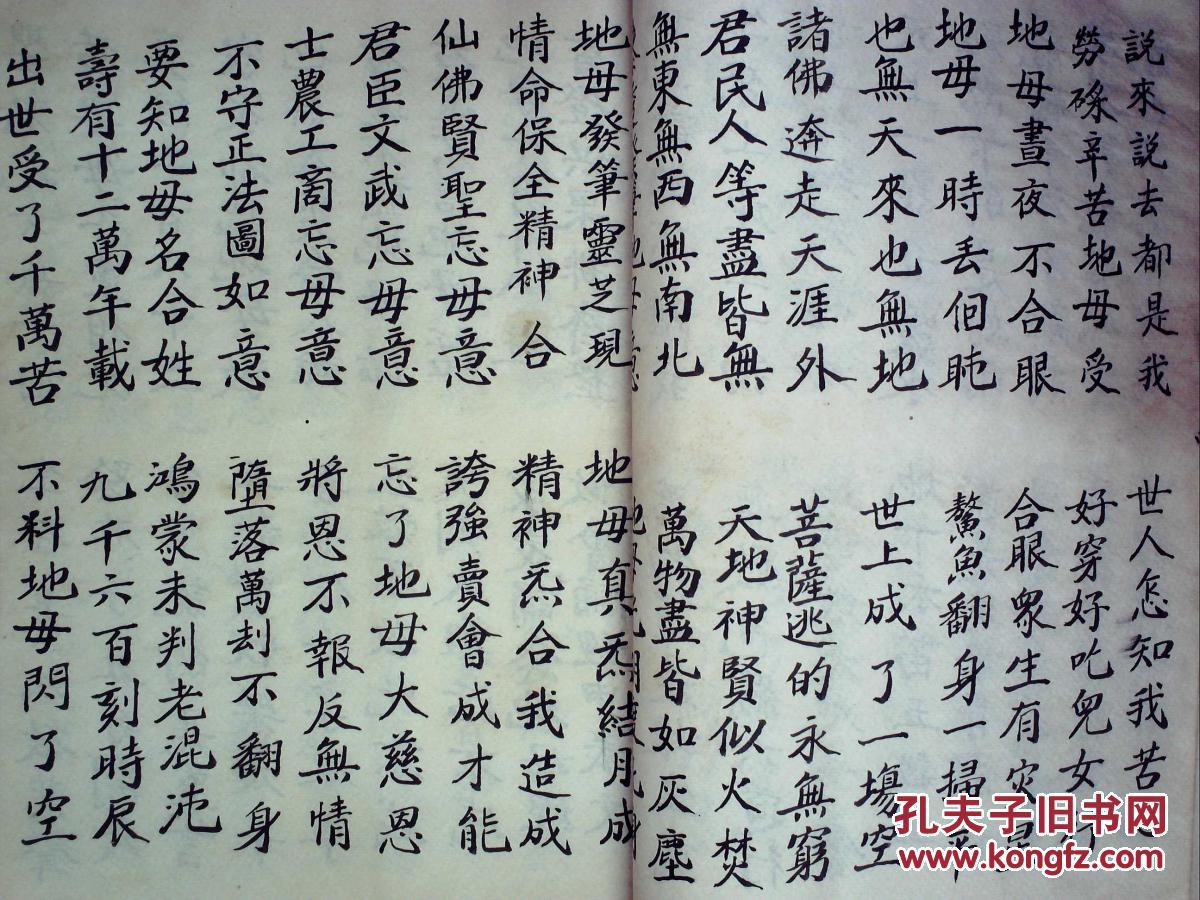 説來説去都是我
世人怎知我苦
勞碌辛苦地母受
好穿好吃兒女
地母晝夜不合眼
合眼衆生有灾
地母一時丢佪盹
鰲魚翻身一掃平
也無天來也無地
世上成了一塲空
諸佛逩走天涯外
菩薩逃的永無窮
君民人等盡皆無
天地神賢似火焚
無東無西無南北
萬物盡皆如灰塵
地母發筆靈芝現
地母真炁結月成
情命保全精神合
精神炁合我造成
仙佛賢聖忘母意
誇強賣會成才能
君臣文武忘母意
忘了地母大慈恩
士農工商忘母意
將恩不報反無情
不守正法圖如意
墮落萬刦不翻身
要知地母名合姓
鴻蒙未判老混沌
壽有十二萬年載
九千六百刻時辰
出世受了千萬苦
不料地母閃了空
孔夫子旧书网
www.kongfz.com